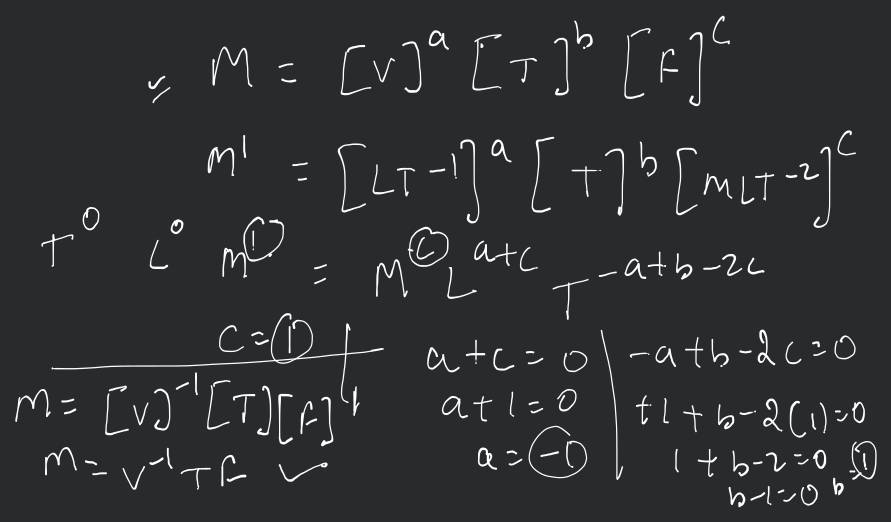 M = [V]ᵃ [T]ᵇ [F]ᶜ
M¹ = [LT⁻¹]ᵃ [T]ᵇ [MLT⁻²]ᶜ
T⁰ L⁰ M¹ = Mᶜ Lᵃ⁺ᶜ T⁻ᵃ⁺ᵇ⁻²ᶜ
c = 1
a + c = 0
a + 1 = 0
a = -1
-a + b - 2c = 0
+1 + b - 2(1) = 0
1 + b - 2 = 0
b - 1 = 0 b = 1
M = [V]⁻¹ [T] [F]¹
M = V⁻¹ T F ✓